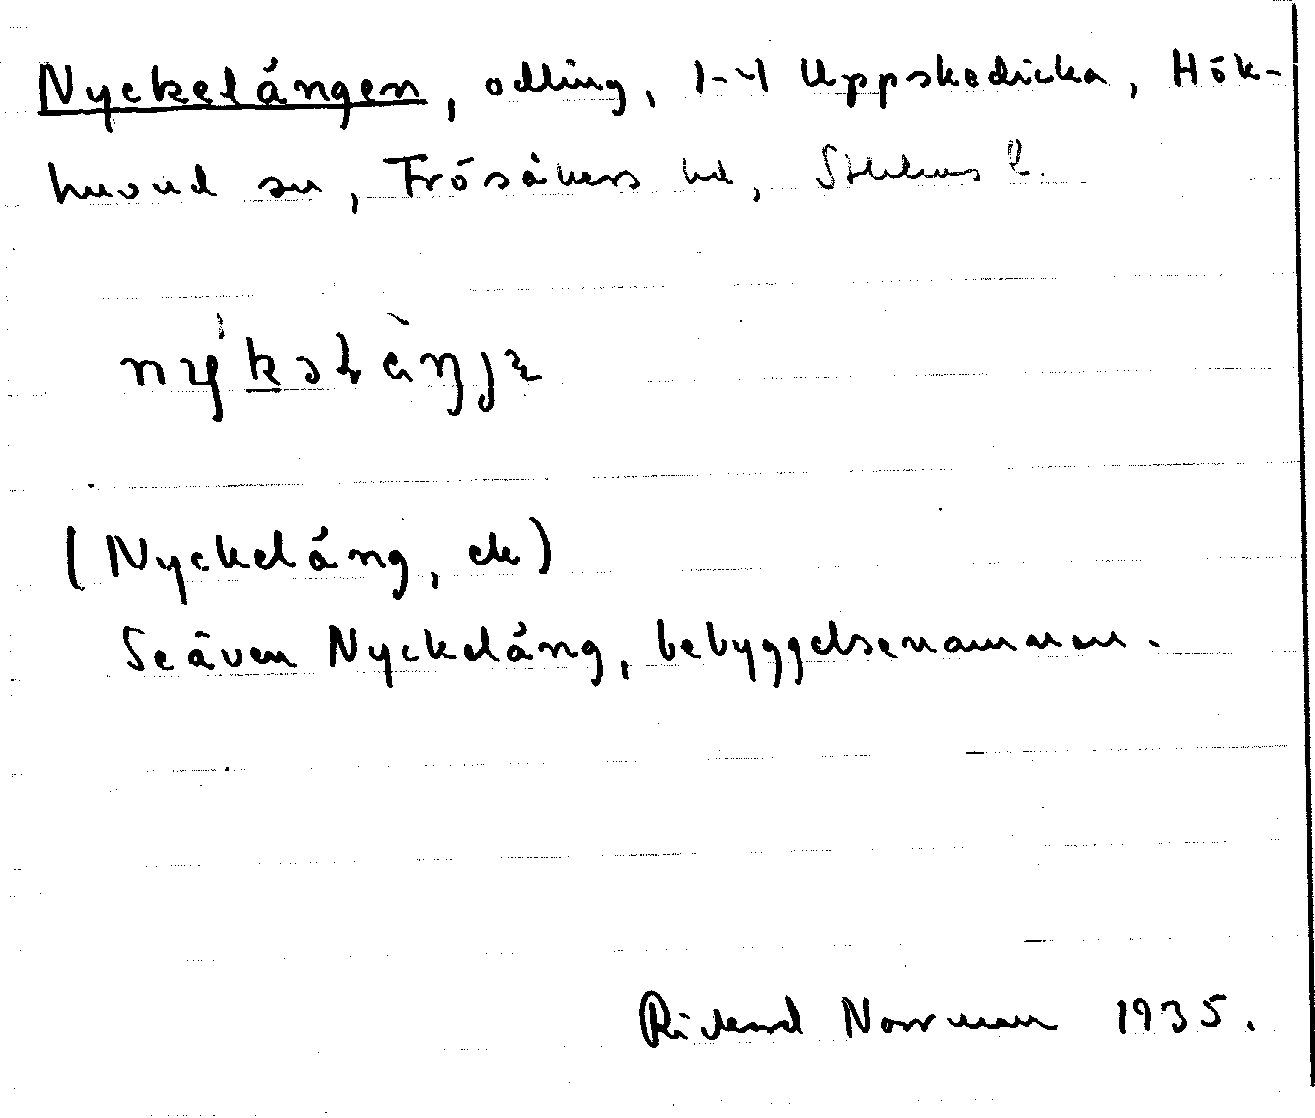 Nyckelängen, odling, 1-4 Uppskedicka, Hök-
huvud sn, Frösåkers hd, Sthlms l.
(Nyckeläng, ek)
Se även Nyckeläng, bebyggelsenamnen.
Rickard Norrman 1935.